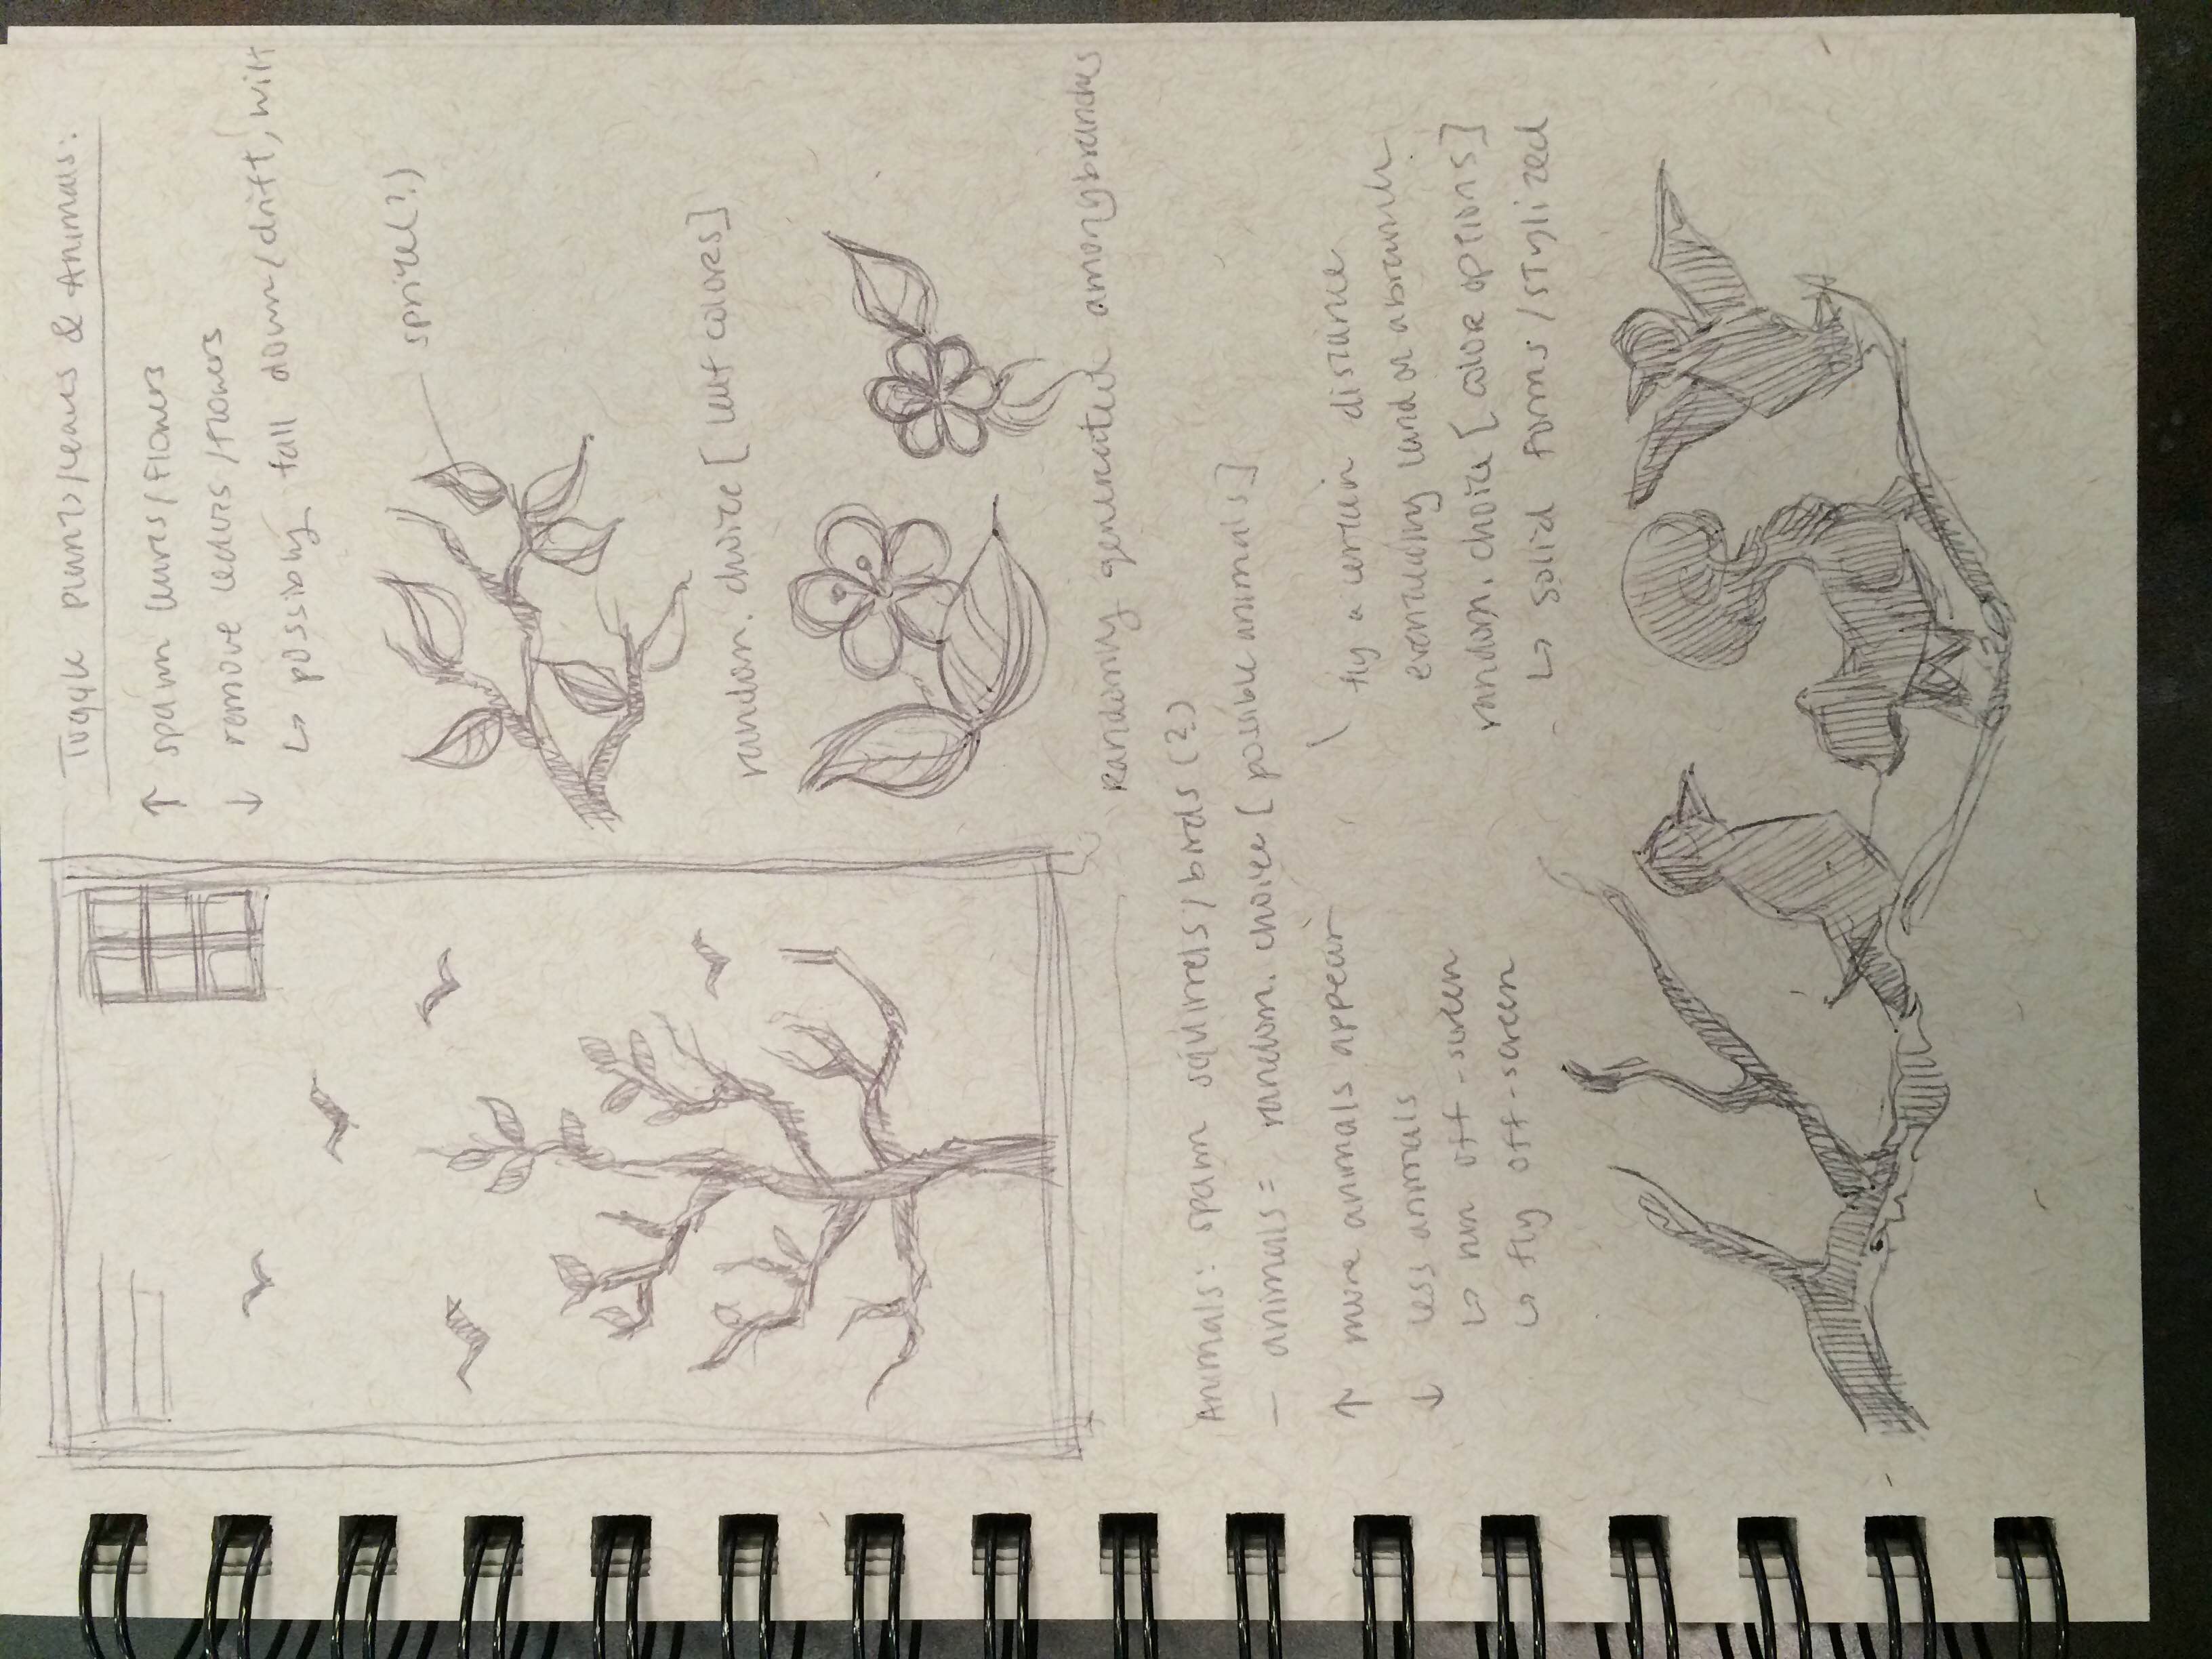 Toggle plants/leaves & Animals:
↑ spawn leaves/flowers
↓ remove leaves/flowers
↳ possibly fall down/drift, wilt
sprite(?)
random.choice[leaf colors]
Randomly generated among branches
Animals: spawn squirrels/birds(?)
— animals = random.choice[possible animals]
↑ more animals appear
↓ less animals
↳ run off-screen
↳ fly off-screen
\ fly a certain distance
eventually land on a branch
random.choice[color options]
↳ solid forms/stylized